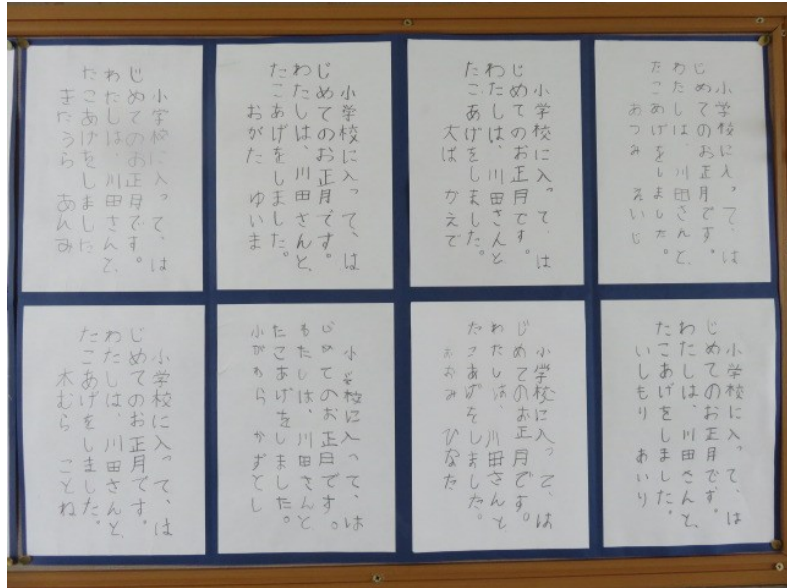 小学校に入って、は
じめてのお正月です。
わたしは、川田さんと、
たこあげをしました。
あつみ
小学校に入って、は
じめてのお正月です。
わたしは、川田さんと、
たこあげをしました。
いしもり あいり
小学校に入って、は
じめてのお正月です。
わたしは、川田さんと
たこあげをしました。
大ば かえで
小学校に入って、は
じめてのお正月です。
わたしは、川田さんと
たこあげをしました。
おおみ ひなた
小学校に入って、は
じめてのお正月です。
わたしは、川田さんと、
たこあげをしました。
おがた ゆいま
小学校に入って、は
じめてのお正月です。
わたしは、川田さんと
たこあげをしました。
小がわら かずとし
小学校に入って、は
じめてのお正月です。
わたしは、川田さんと、
たこあげをしました
きたうら あんみ
小学校に入って、は
じめてのお正月です。
わたしは、川田さんと、
たこあげをしました。
木むら ことね